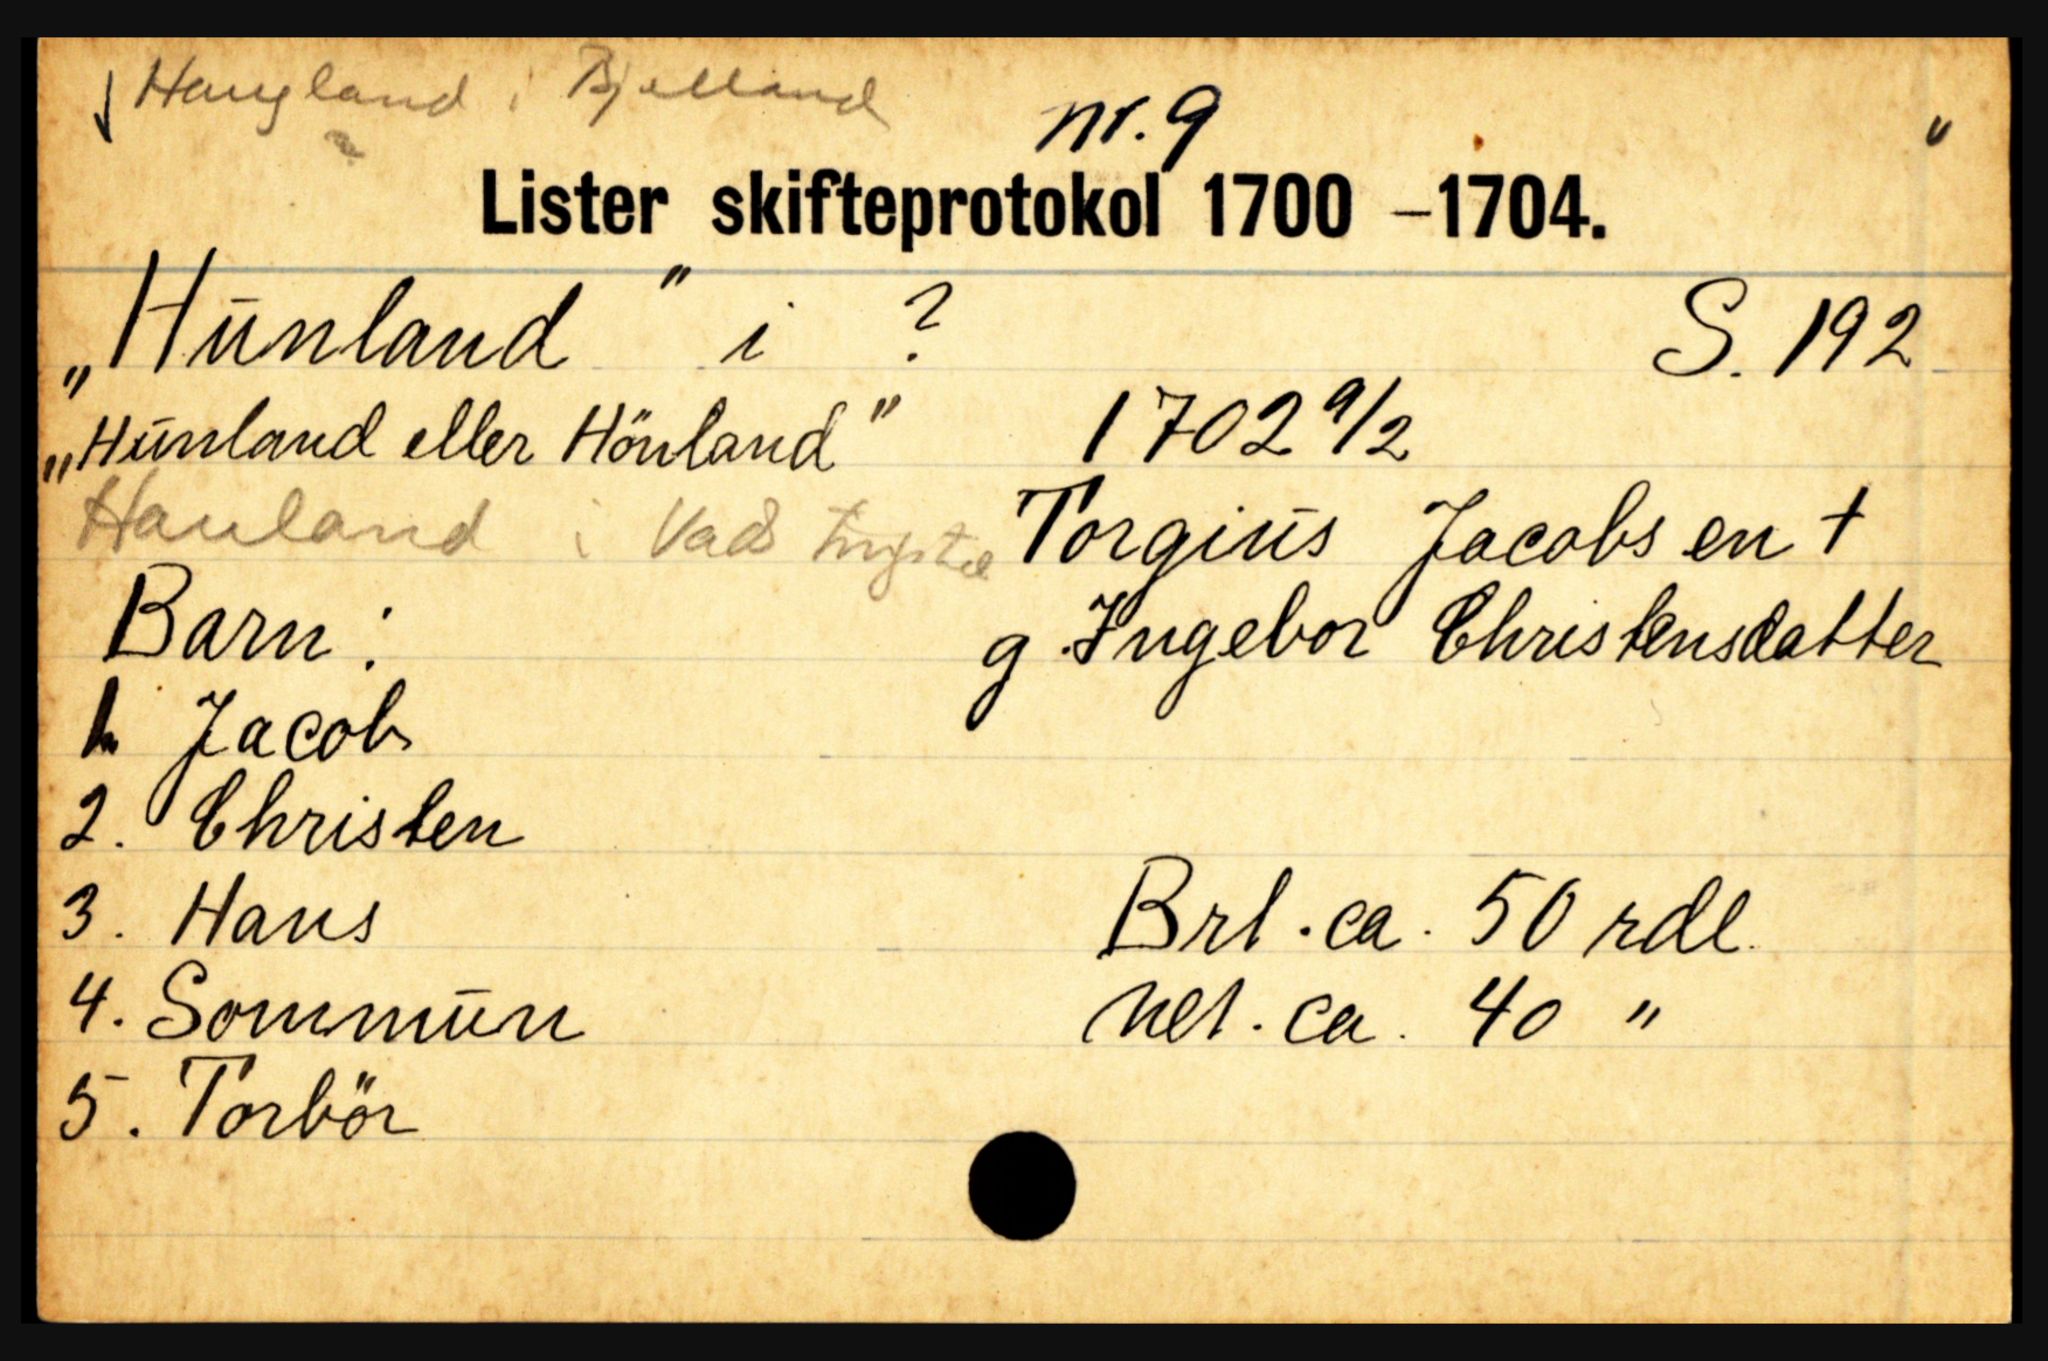 Haugland i Bjelland
?
nr. 9
Lister skifteprotokol 1700 –1704.
„Hünland" i ? S. 192
„Hünland eller Hönland" 1702 9/2
Hauland i Vads
Torgiüs Jacobsen †
Barn: g. Ingebor Christensdatter
1. Jacob
2. Christen
3. Hans Brt. ca. 50 rdl.
4. Sommün Net. ca. 40 "
5. Torbör